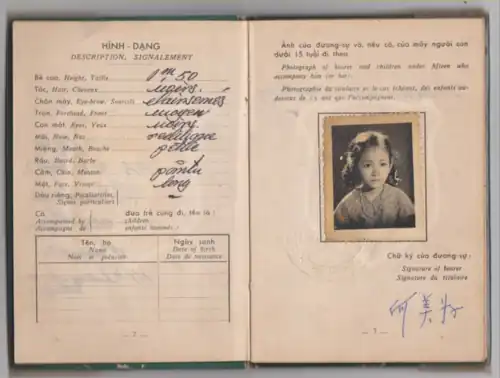 HÌNH-DẠNG
DESCRIPTION, SIGNALEMENT
Bề cao, Height, Taille 1m50
Tóc, Hair, Cheveux noirs.
Chân mày, Eye-brow, Sourcils clairsemés
Trán, Forehead, Front moyen
Con mắt, Eyes, Yeux noirs
Mũi, Nose, Nez rectiligne
Miệng, Mouth, Bouche petite
Râu, Beard, Barbe
Cằm, Chin, Menton pointu
Mặt, Face, Visage long
Dấu riêng, Peculiarities,
Signes particuliers
Có đưa trẻ cùng đi, tên là :
Accompanied by children
Accompagné de enfants nommés :
Tên, họ Ngày sanh
Name Date of birth
Nom et prénom Date de naissance
— 2 —
Ảnh của đương-sự và, nếu có, của mấy người con
dưới 15 tuổi đi theo.
Photograph of bearer and children under fifteen who
accompany him (or her).
Photographie du titulaire et le cas échéant, des enfants au-
dessous de 15 ans qui l'accompagnent.
Chữ ký của đương-sự :
Signature of bearer
Signature du titulaire
何美
— 3 —